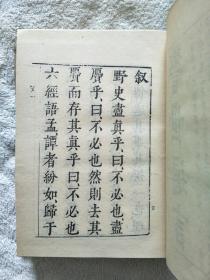 叙
野史盡真乎曰不必也盡
贋乎曰不必也然則去其
贋而存其真乎曰不必也
六經語孟譚者紛如歸于